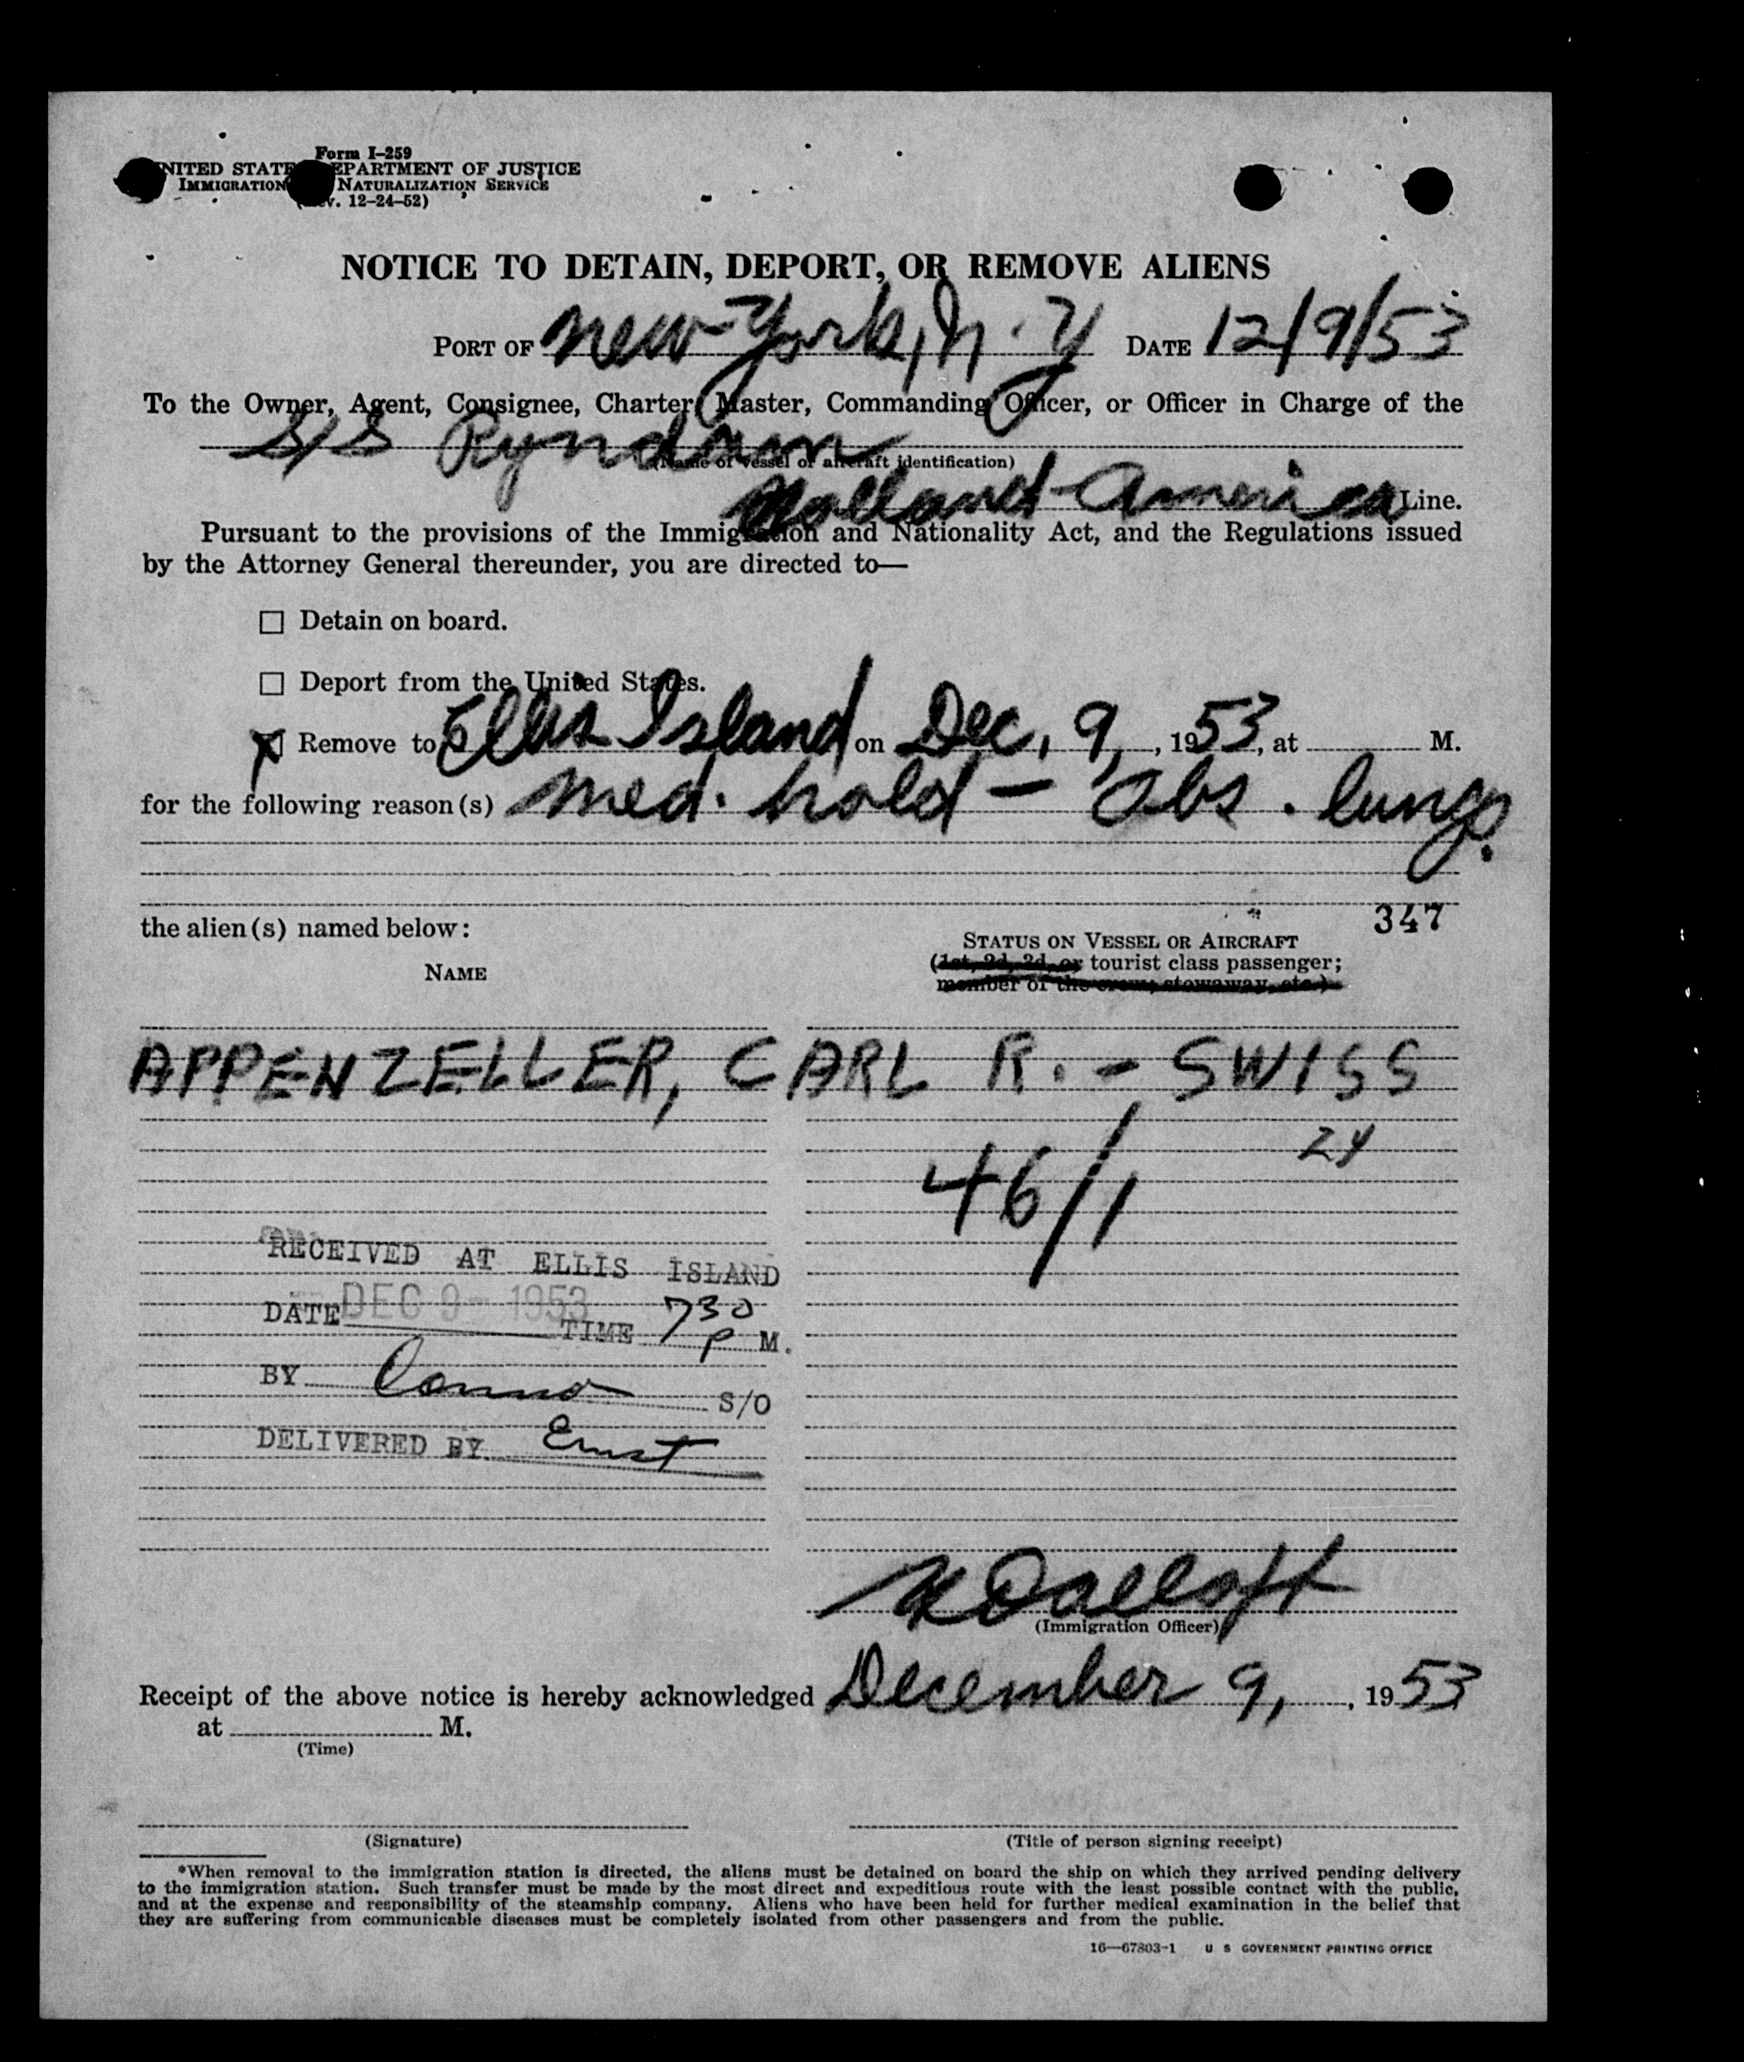 Form I-259
UNITED STATES DEPARTMENT OF JUSTICE
IMMIGRATION NATURALIZATION SERVICE
(Rev. 12-24-52)
NOTICE TO DETAIN, DEPORT, OR REMOVE ALIENS
PORT OF New York, N.Y DATE 12/9/53
To the Owner, Agent, Consignee, Charter, Master, Commanding Officer, or Officer in Charge of the
S/S Ryndam
(Name of vessel or aircraft identification)
Holland-America Line.
Pursuant to the provisions of the Immigration and Nationality Act, and the Regulations issued
by the Attorney General thereunder, you are directed to—
☐ Detain on board.
☐ Deport from the United States.
☒ Remove to Ellis Island on Dec, 9, , 1953, at M.
for the following reason(s) med. hold - obs. lungs.
347
the alien(s) named below:
NAME
STATUS ON VESSEL OR AIRCRAFT
(1st, 2d, 3d, or tourist class passenger;
member of the crew; stowaway, etc.)
APPENZELLER, CARL R. - SWISS
24
46/1
RECEIVED AT ELLIS ISLAND
DATE DEC 9 - 1953 TIME 730 P M.
BY S/O
DELIVERED BY Ernst
(Immigration Officer)
Receipt of the above notice is hereby acknowledged December 9, , 1953
at M.
(Time)
(Signature) (Title of person signing receipt)
*When removal to the immigration station is directed, the aliens must be detained on board the ship on which they arrived pending delivery
to the immigration station. Such transfer must be made by the most direct and expeditious route with the least possible contact with the public,
and at the expense and responsibility of the steamship company. Aliens who have been held for further medical examination in the belief that
they are suffering from communicable diseases must be completely isolated from other passengers and from the public.
16—67803-1 U S GOVERNMENT PRINTING OFFICE